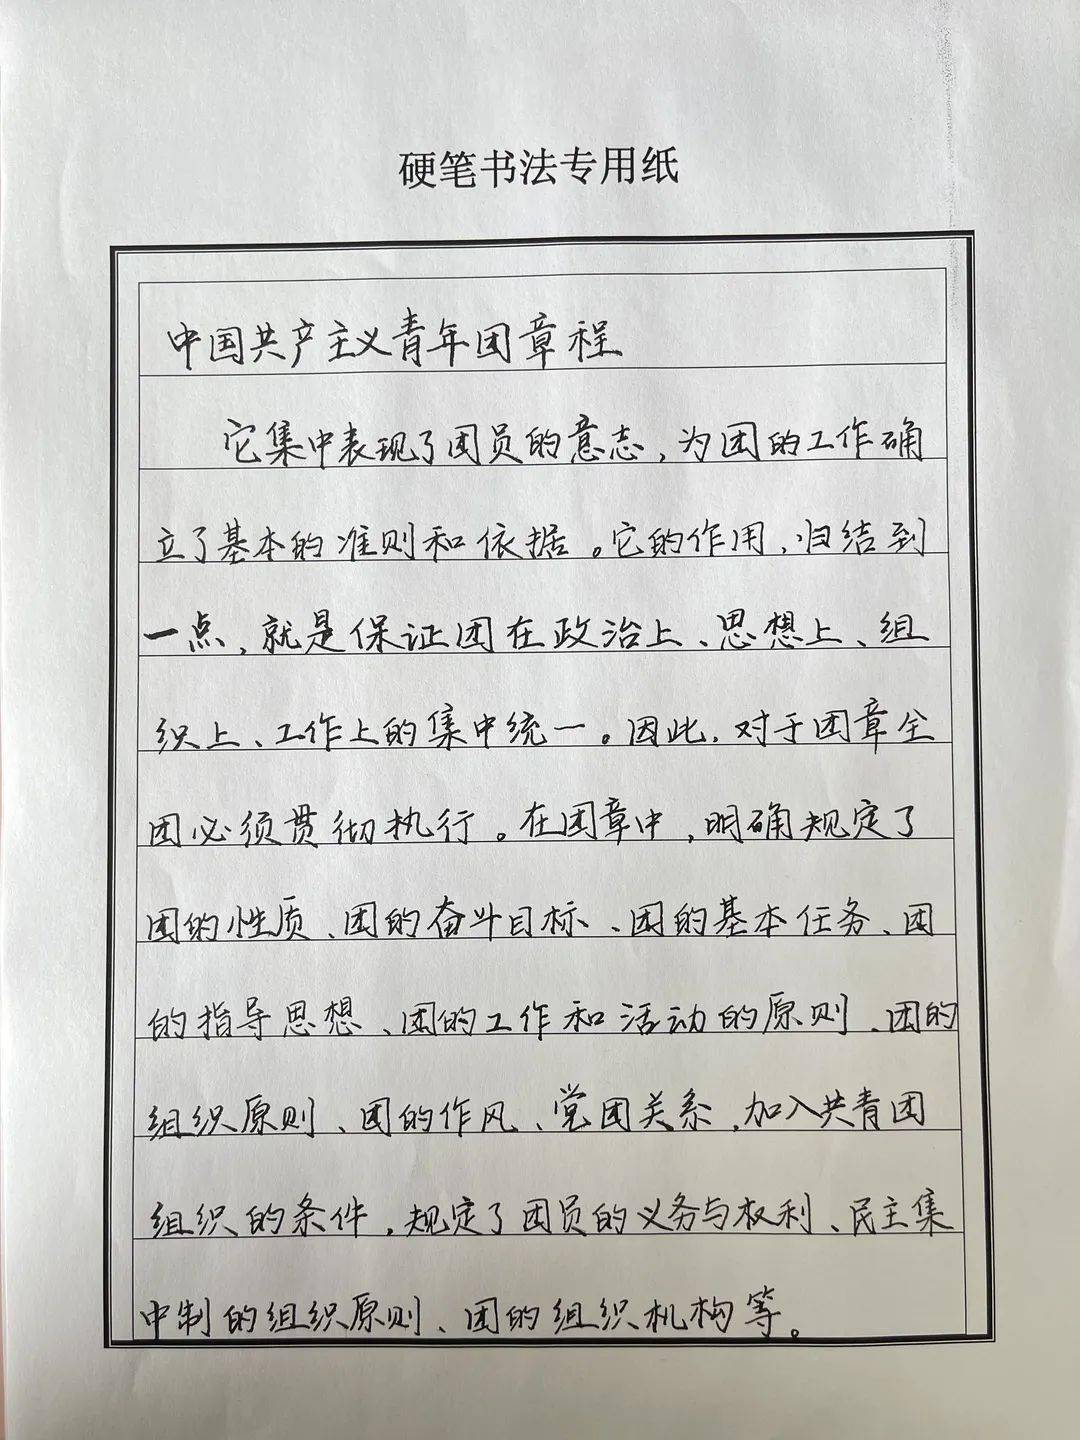 硬笔书法专用纸
中国共产主义青年团章程
它集中表现了团员的意志，为团的工作确
立了基本的准则和依据。它的作用，归结到
一点，就是保证团在政治上、思想上、组
织上、工作上的集中统一。因此，对于团章全
团必须贯彻执行。在团章中，明确规定了
团的性质、团的奋斗目标、团的基本任务、团
的指导思想、团的工作和活动的原则、团的
组织原则、团的作风、党团关系，加入共青团
组织的条件，规定了团员的义务与权利、民主集
中制的组织原则、团的组织机构等。